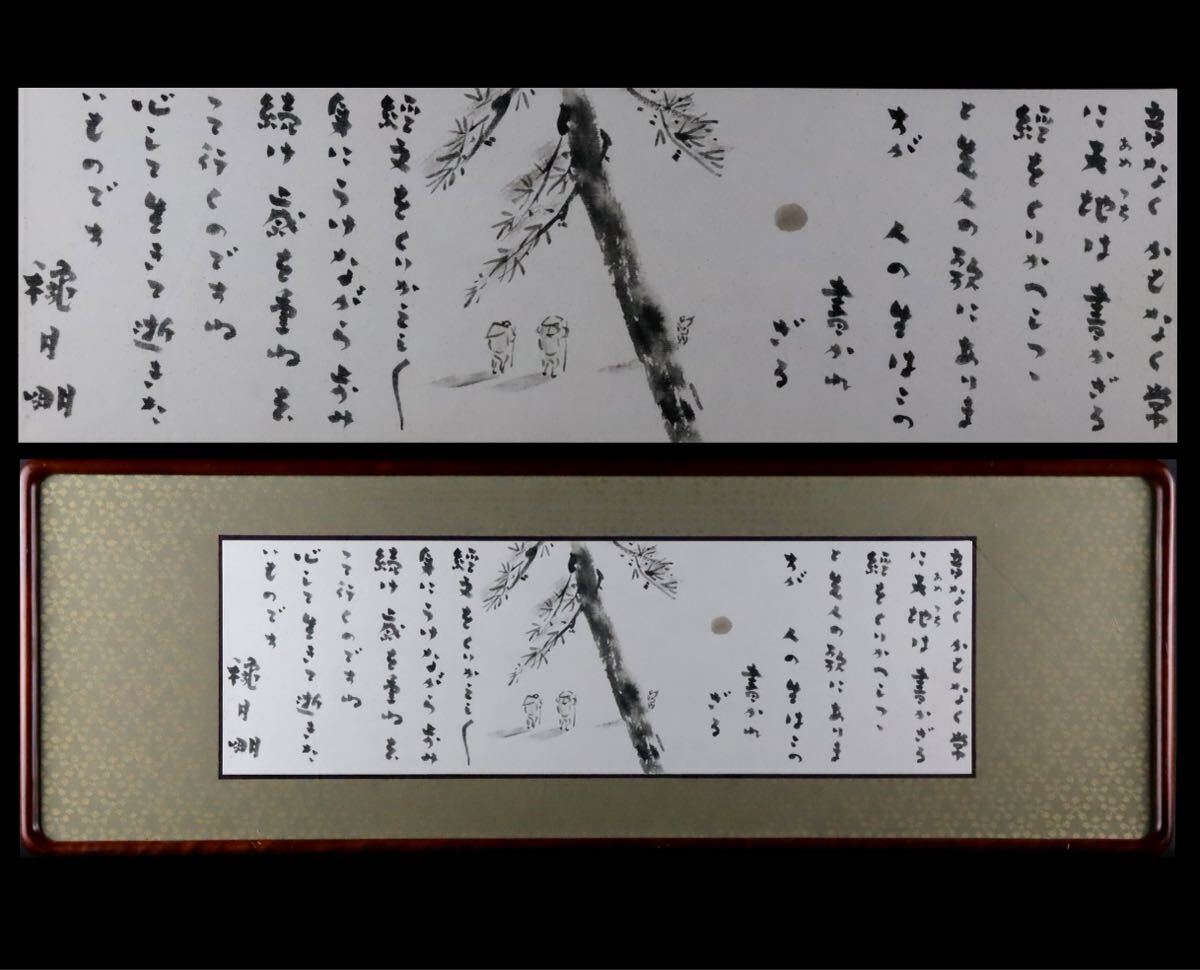 音もなく かもなく 常
に天地は 書かざる
あめ つち
經をくりかへしつゝ
と先人の歌にありま
すが 人の生はこの
書かれ
ざる
經文をくりかえし
身にうけながら歩み
続け 歳を重ね去
って行くのですね
心して生きて逝きた
いものです
穐月明
音もなく かもなく 常
に天地は 書かざる
あめ つち
經をくりかへしつゝ
と先人の歌にありま
すが 人の生はこの
書かれ
ざる
經文をくりかえし
身にうけながら歩み
続け 歳を重ね去
って行くのですね
心して生きて逝きた
いものです
穐月明